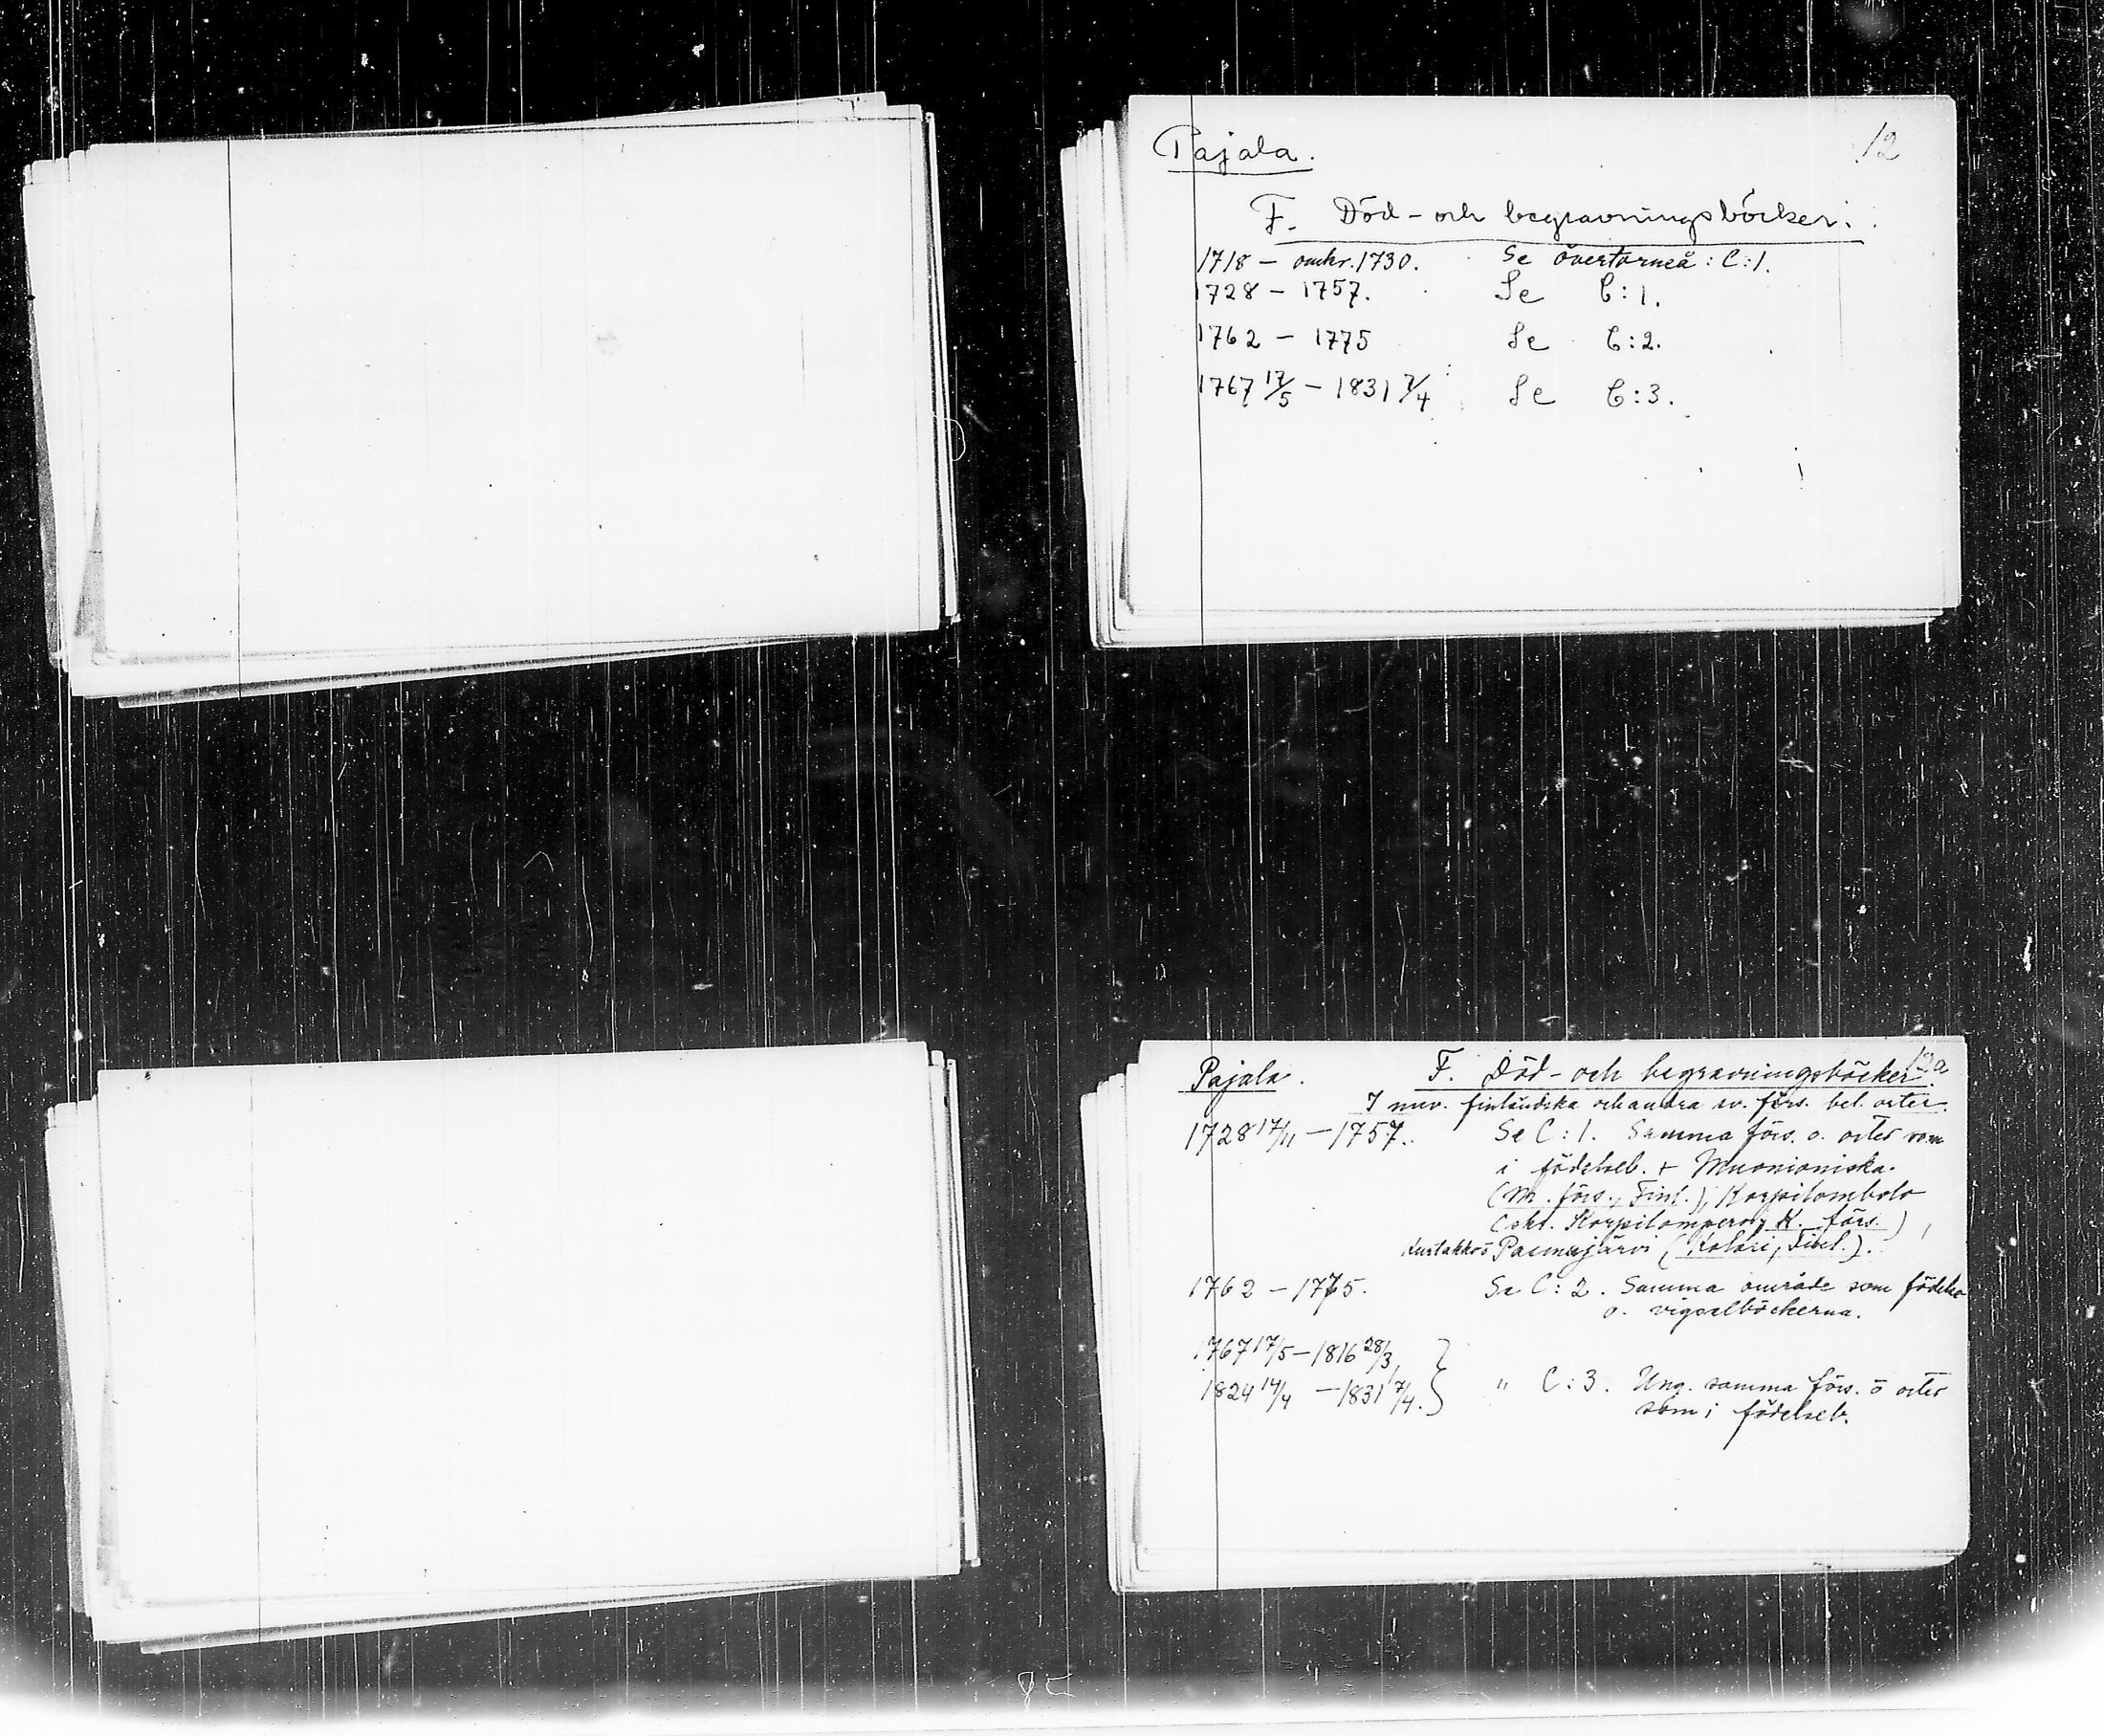 Pajala.
12
F. Död- och begravningsböcker.
1718 - omkr. 1730. Se övertorneå: C:1.
1728 - 1757. Se C:1.
1762 - 1775 Se C:2.
1767 17/5 - 1831 7/4 Se C:3.
Pajala. F. Död- och begravningsböcker. 12a
I nuv. finländska och andra sv. förs. bel. orter.
1728 17/11 - 1757. Se C:1. Samma förs. o. orter som
i födelseb. + Muonioniska
(M. förs., Finl.), Korpilombolo
Korpilompero, K. förs.)
Kurtakko Pasmajärvi (Kolari, Finl.).
1762 - 1775. Se C:2. Samma område som födelse
o. vigselböckerna.
1767 17/5 - 1816 28/3, }
1824 14/4 - 1831 7/4. } " C:3. Ung. samma förs. o orter
som i födelseb.